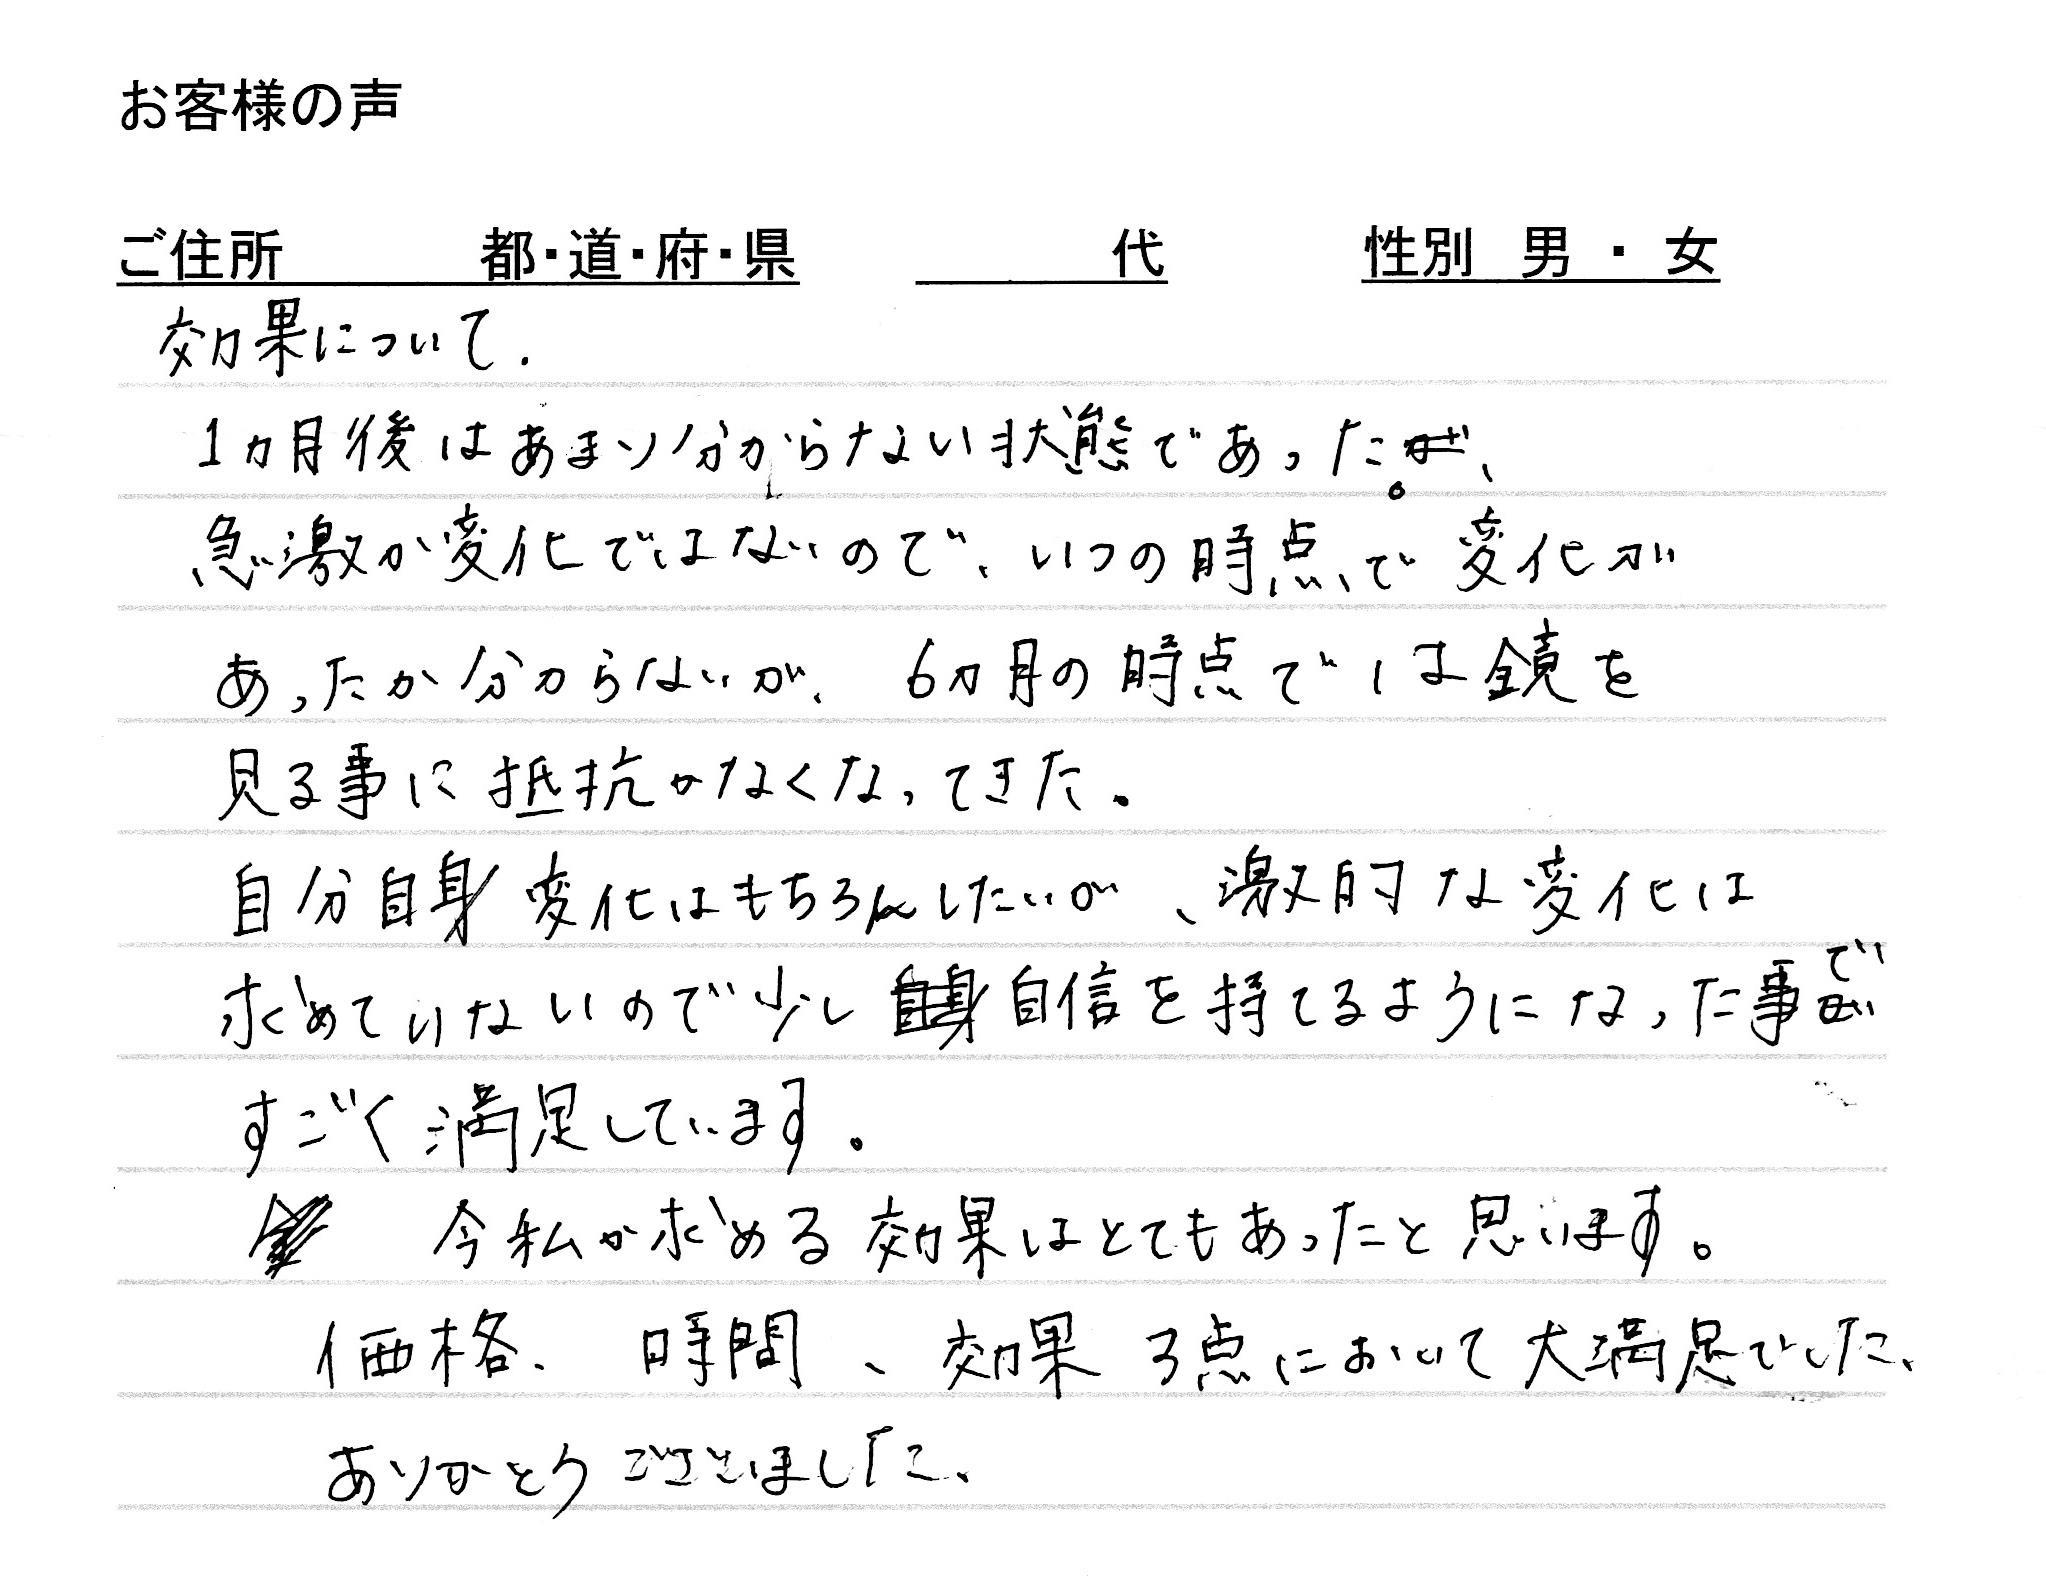 お客様の声
ご住所　　　都・道・府・県　　　　　代　　　性別　男　・　女
効果について.
1ヵ月後はあまり分からない状態であった。
急激か変化ではないので、いつの時点で変化が
あったか分からないが、6ヵ月の時点では鏡を
見る事に抵抗がなくなってきた。
自分自身変化はもちろんしたいが、激的な変化は
求めていないので少し自信を持てるようになった事で
すごく満足しています。
今私が求める効果はとてもあったと思います。
価格、時間、効果 3点において大満足でした、
ありがとうございました、